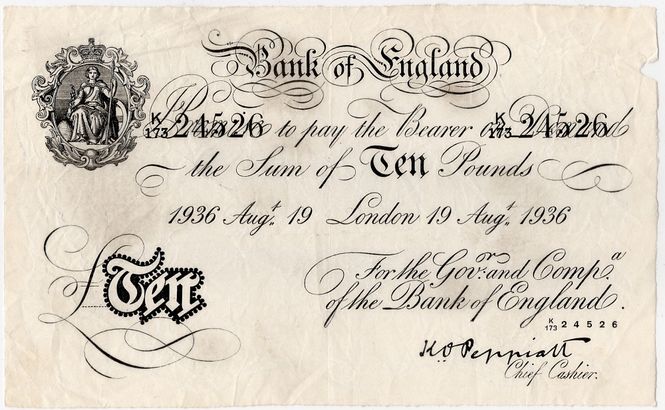 Bank of England
K/173 24526 K/173 24526
I Promise to pay the Bearer on Demand
the Sum of Ten Pounds
1936 Augt. 19 London 19 Augt. 1936
For the Govr. and Compa.
of the Bank of England.
K/173 24526
£Ten
K.O. Peppiatt
Chief Cashier.